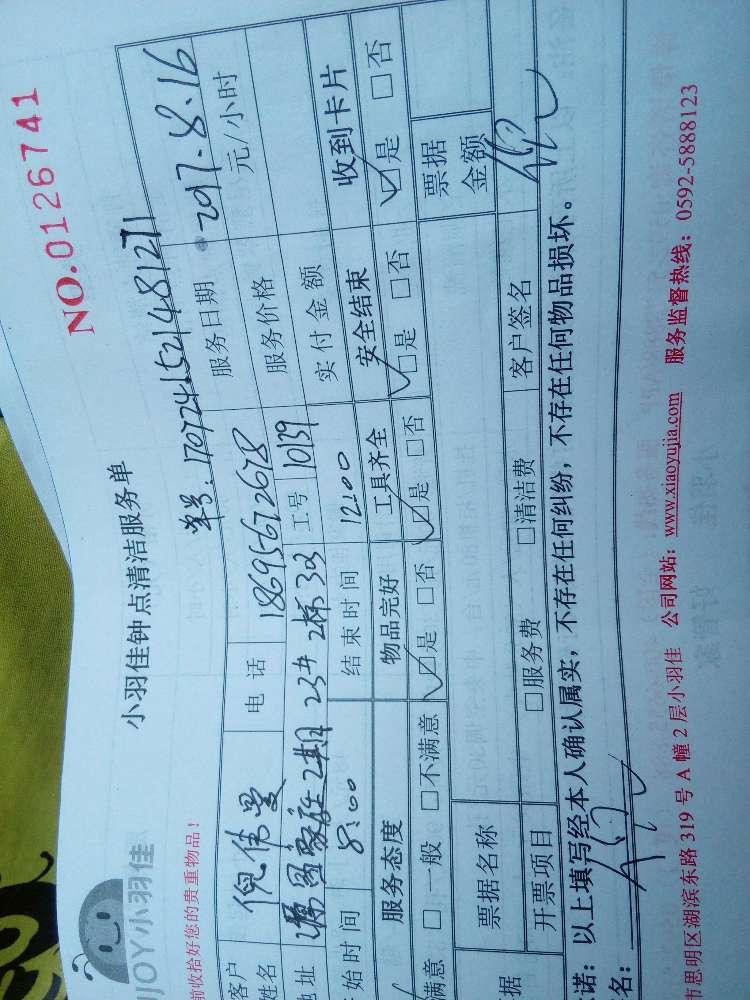 NO.0126741
小羽佳钟点清洁服务单
JOY小羽佳
前收拾好您的贵重物品！
单号：1707241521481271
客户姓名 倪伟 电话 18695672678 服务日期 2017.8.16
地址 2期23# 2梯303 工号 10139 服务价格 元/小时
始时间 8:00 结束时间 12:00 实付金额
服务态度 物品完好 工具齐全 安全结束 收到卡片
满意 □一般 □不满意 □是 □否 □是 □否 □是 □否 □是 □否
据 票据名称 票据金额
开票项目 □服务费 □清洁费 客户签名
诺：以上填写经本人确认属实，不存在任何纠纷，不存在任何物品损坏。
名：
市思明区湖滨东路 319 号 A 幢 2 层小羽佳 公司网站：www.xiaoyujia.com 服务监督热线：0592-5888123